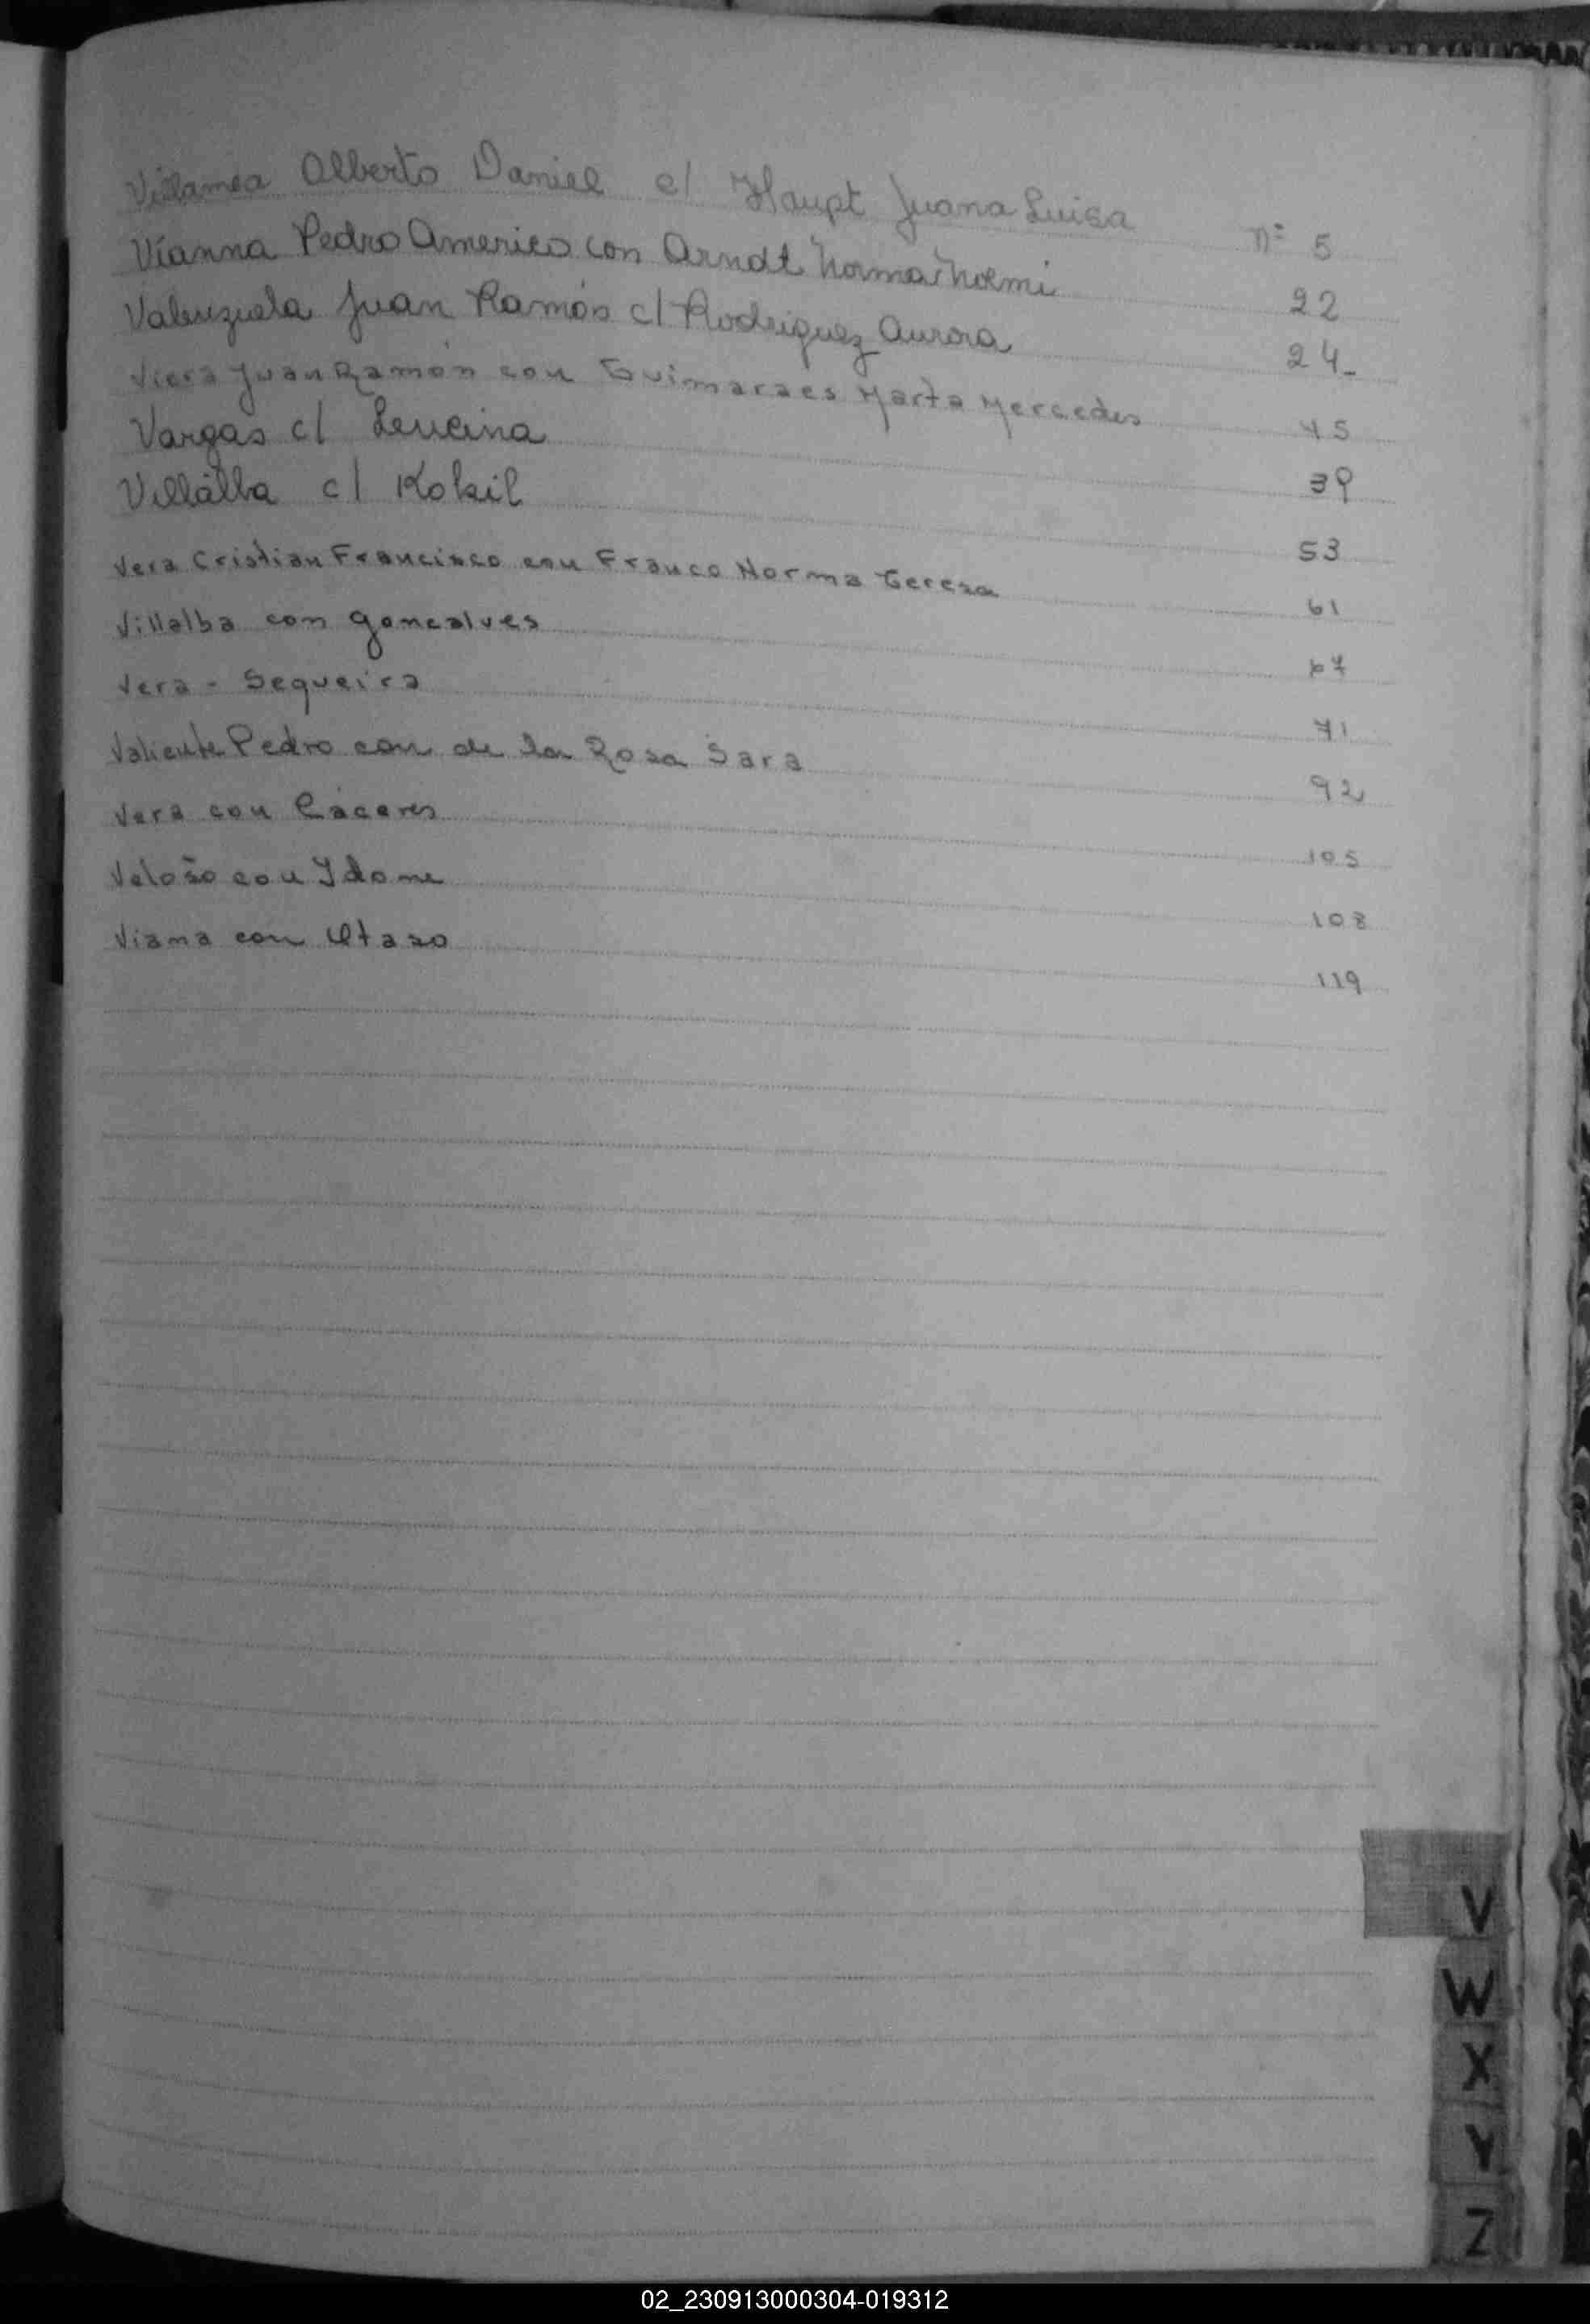 Villamea Alberto Daniel c/ Haupt Juana Luisa nº 5
Vianna Pedro Americo con Arndt Norma Noemi 22
Valenzuela Juan Ramón c/ Rodriguez Aurora 24-
Viera Juan Ramón con Guimaraes Marta Mercedes 45
Vargas c/ Leucina 39
Villalba c/ Kokil 53
Vera Cristian Francisco con Franco Norma Teresa 61
Villalba con Goncalves 67
Vera - Sequeira 71
Valiente Pedro con de la Rosa Sara 92
Vera con Cáceres 105
Veloso con 108
Viana con 119
V
W
X
Y
Z
02_230913000304-019312